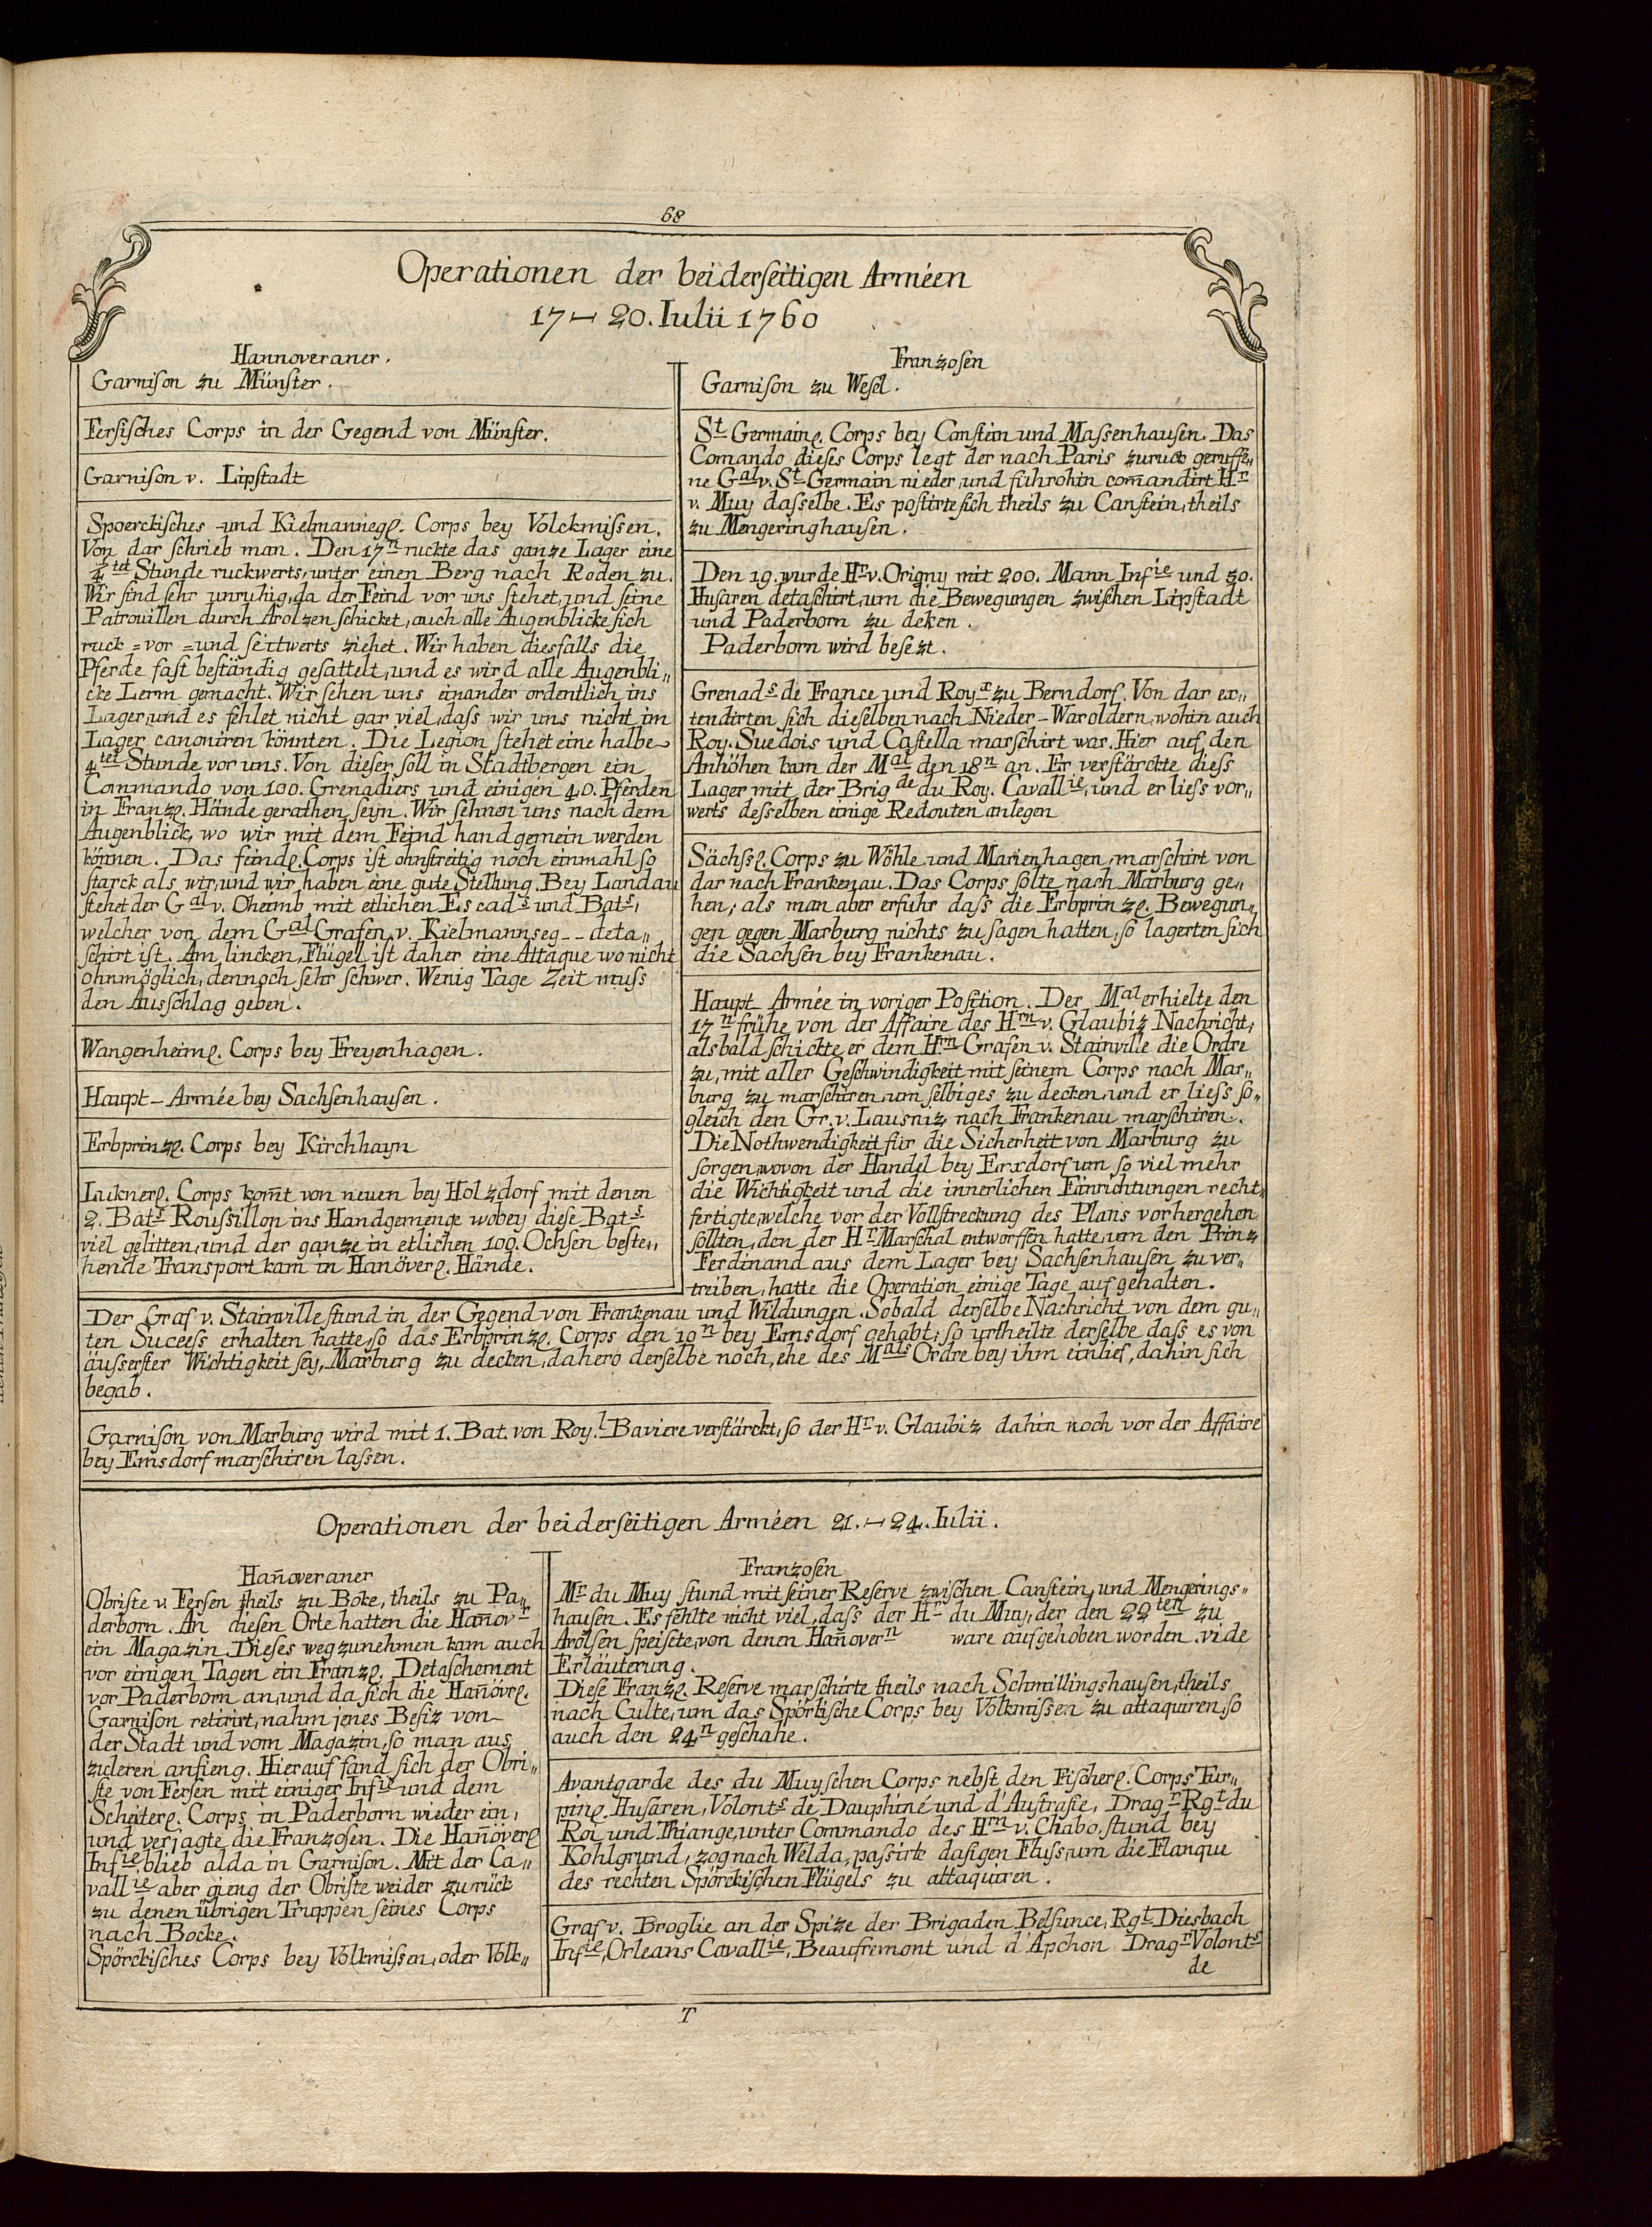 68
Operationen der beiderſeitigen Arméen
17 – 20. Iulii 1760
Hannoveraner.
Garniſon zu Münſter.
Ferſiſches Corps in der Gegend von Münſter.
Garniſon v. Lipſtadt
Spoerckiſches -und Kielmannſegl. Corps bey Volckmiſsen.
Von dar ſchrieb man. Den 17n ruckte das ganze Lager eine
4tel Stunde ruckwerts, unter einen Berg nach Roden zu.
Wir ſind ſehr unruhig, da der Feind vor uns ſtehet, und ſeine
Patrouillen durch Arolzen ſchicket, auch alle Augenblicke ſich
ruck = vor = und ſeitwerts ziehet. Wir haben diesfalls die
Pferde faſt beſtändig geſattelt, und es wird alle Augenbli„
cke Lerm gemacht. Wir ſehen uns einander ordentlich ins
Lager, und es fehlet nicht gar viel, daſs wir uns nicht im
Lager canoniren könnten. Die Legion ſtehet eine halbe
4tel Stunde vor uns. Von dieſer ſoll in Stadtbergen ein
Commando von 100. Grenadiers und einigen 40. Pferden
in Franzl. Hände gerathen ſeyn. Wir ſehnen uns nach dem
Augenblick, wo wir mit dem Feind hand gemein werden
können. Das feindl. Corps iſt ohnſtreitig noch einmahl ſo
ſtarck als wir, und wir haben eine gute Stellung. Bey Landau
ſtehet der Gal v. Oheimb mit etlichen Escads und Bats,
welcher von dem Gal Grafen v. Kielmannseg -- deta„
ſchirt iſt. Am lincken Flügel iſt daher eine Attaque wo nicht
ohnmöglich, dennoch ſehr ſchwer. Wenig Tage Zeit muſs
den Ausſchlag geben.
Wangenheiml. Corps bey Freyenhagen.
Haupt-Armée bey Sachſenhauſen.
Erbprinzl. Corps bey Kirchhayn
Luknerl. Corps kom̄t von neuen bey Holzdorf mit denen
2. Bats Rouſsillon ins Handgemenge wobey dieſe Bats
viel gelitten, und der ganze in etlichen 100. Ochſen beſte„
hende Transport kam in Hanöverl. Hände.
Franzoſen
Garniſon zu Weſel.
St Germainl. Corps bey Canſtein und Maſsenhauſen. Das
Comando dieſes Corps legt der nach Paris zuruck geruffe„
ne Gal v. St Germain nieder, und führohin com̄andirt Hr
v. Muy daſselbe. Es poſtirte ſich theils zu Canſtein, theils
zu Mengeringhauſen.
Den 19. wurde Hr v. Origny mit 200. Mann Infie und 50.
Huſaren detaſchirt, um die Bewegungen zwiſchen Lipſtadt
und Paderborn zu deken.
Paderborn wird beſezt.
Grenads de France und Royx zu Berndorf. Von dar ex„
tendirten ſich dieſelben nach Nieder-Waroldern, wohin auch
Roy. Suedois und Caſtella marſchirt war. Hier auf den
Anhöhen kam der Mal den 18n an. Er verſtärckte dieſs
Lager mit der Brigde du Roy. Cavallie, und er lieſs vor„
werts deſselben einige Redouten anlegen
Sächſsl. Corps zu Wöhle und Marienhagen, marſchirt von
dar nach Frankenau. Das Corps ſolte nach Marburg ge„
hen; als man aber erfuhr daſs die Erbprinzl. Bewegun„
gen gegen Marburg nichts zu ſagen hatten, ſo lagerten ſich
die Sachſen bey Frankenau.
Haupt-Armée in voriger Poſition. Der Mal erhielte den
17n frühe von der Affaire des Hrn v. Glaubiz Nachricht,
alsbald ſchickte er dem Hrn Grafen v. Stainville die Ordre
zu, mit aller Geſchwindigkeit mit ſeinem Corps nach Mar„
burg zu marſchiren, um ſelbiges zu decken, und er lieſs ſo„
gleich den Gr. v. Lausniz nach Frankenau marſchiren.
Die Nothwendigkeit für die Sicherheit von Marburg zu
ſorgen, wovon der Handel bey Erxdorf um ſo viel mehr
die Wichtigkeit und die innerlichen Einrichtungen recht„
fertigte, welche vor der Vollſtreckung des Plans vorhergehen
ſollten, den der Hr Marſchal entworffen hatte, um den Prinz
Ferdinand aus dem Lager bey Sachſenhauſen zu ver„
treiben, hatte die Operation einige Tage aufgehalten.
Der Graf v. Stainville ſtund in der Gegend von Frankenau und Wildungen. Sobald derſelbe Nachricht von dem gu„
ten Succeſs erhalten hatte, ſo das Erbprinzl. Corps den 10n bey Emsdorf gehabt; ſo urtheilte derſelbe daſs es von
äuſserſter Wichtigkeit ſey, Marburg zu decken, dahero derſelbe noch, ehe des Mals Ordre bey ihm einlief, dahin ſich
begab.
Garniſon von Marburg wird mit 1. Bat. von Roy.l Baviere verſtärckt, ſo der Hr v. Glaubiz dahin noch vor der Affaire
bey Emsdorf marſchiren laſsen.
Operationen der beiderſeitigen Arméen 21. – 24. Iulii.
Han̄overaner
Obriſte v. Ferſen theils zu Boke, theils zu Pa„
derborn. An dieſen Orte hatten die Han̄ovr
ein Magazin. Dieſes weg zunehmen kam auch
vor einigen Tagen ein Franzl. Detaſchement
vor Paderborn an, und da ſich die Han̄övrl.
Garniſon retirirt, nahm jenes Beſiz von
der Stadt und vom Magazin, ſo man aus
zuleren anfieng. Hierauf fand ſich der Obri„
ſte von Ferſen mit einiger Infie und dem
Scheiterl. Corps in Paderborn wieder ein,
und verjagte die Franzoſen. Die Han̄överl
Infie blieb alda in Garniſon. Mit der Ca„
vallie aber gieng der Obriſte weider zurück
zu denen übrigen Truppen ſeines Corps
nach Bocke.
Spörckiſches Corps bey Volkmiſsen, oder Volk„
Franzoſen
Mr du Muy ſtund mit ſeiner Reſerve zwiſchen Canſtein, und Mengerings„
hauſen. Es fehlte nicht viel, daſs der Hr du Muy, der den 22ten zu
Arolſen ſpeiſete, von denen Han̄overn ware aufgehoben worden. vide
Erläuterung.
Dieſe Franzl. Reſerve marſchirte theils nach Schmillingshauſen, theils
nach Culte, um das Spörkiſche Corps bey Volkmiſsen zu attaquiren, ſo
auch den 24n geſchahe.
Avantgarde des du Muyſchen Corps nebſt den Fiſcherl. Corps Tur„
pinl. Huſaren, Volonts de Dauphiné und d'Auſtraſie, Dragr Rgt du
Roi und Thiange, unter Commando des Hrn v. Chabo, ſtund bey
Kohlgrund, zog nach Welda, paſsirte daſigen Fluſs, um die Flanque
des rechten Spörckiſchen Flügels zu attaquiren.
Graf v. Broglie an der Spize der Brigaden Belſunce, Rgt Diesbach
Infie, Orleans Cavallie, Beaufremont und d'Apchon Dragr Volonts
de
T